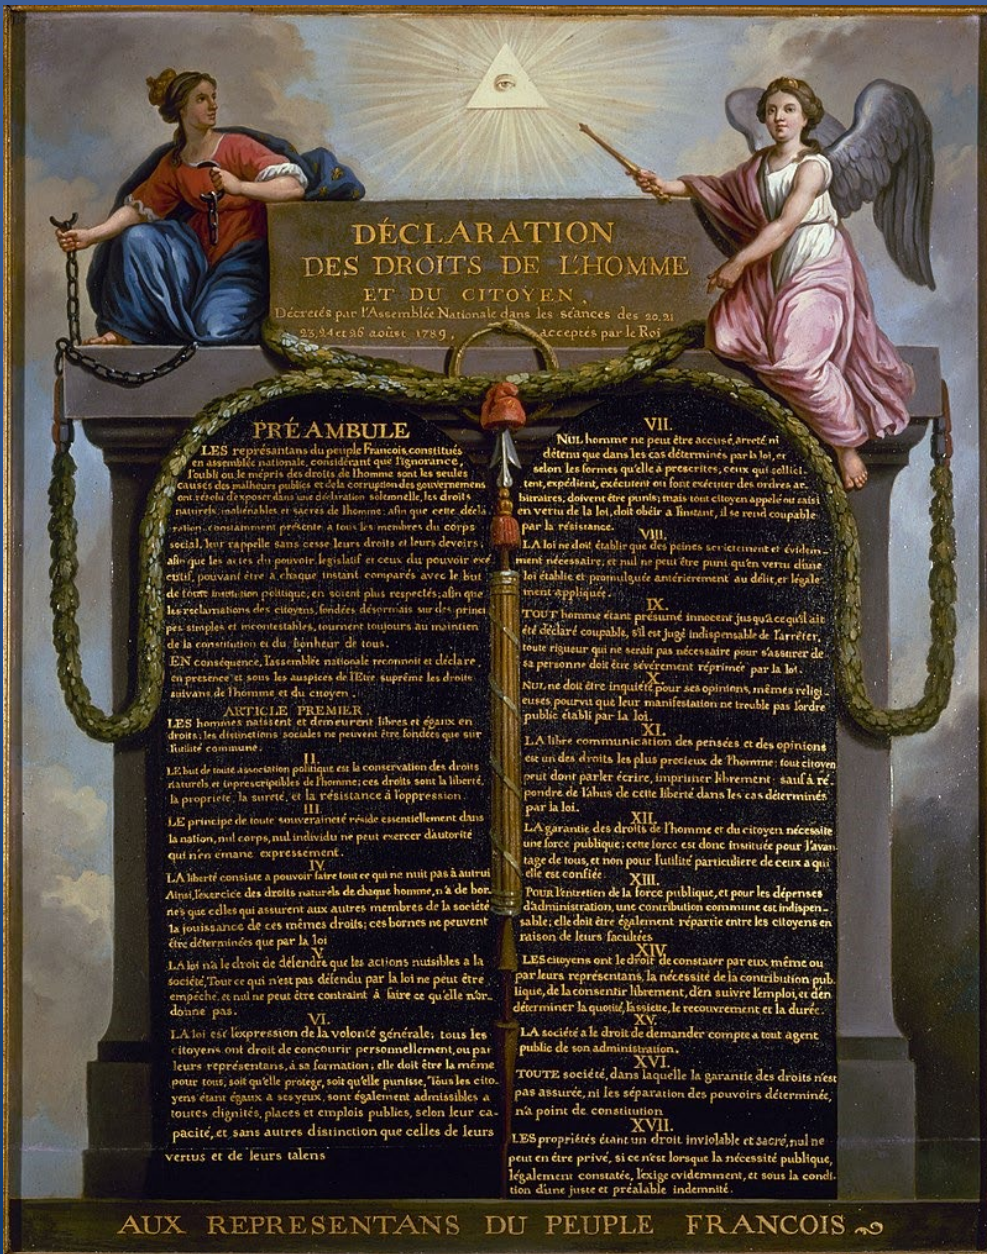 DÉCLARATION
DES DROITS DE L'HOMME
ET DU CITOYEN,
Décretés par l'Assemblée Nationale dans les séances des 20, 21
23, 24 et 26 août 1789, acceptés par le Roi
PRÉAMBULE
LES représantans du peuple Francois, constitués
en assemblée nationale, considérant que l'ignorance,
l'oubli ou le mépris des droits de l'homme sont les seules
causes des malheurs publics et de la corruption des gouvernemens
ont résolu d'exposer dans une déclaration solemnelle, les droits
naturels, inaliénables et sacrés de l'homme; afin que cette décla
ration, constamment présente a tous les membres du corps
social, leur rappelle sans cesse leurs droits et leurs devoirs;
afin que les actes du pouvoir législatif et ceux du pouvoir exé
cutif, pouvant être a chaque instant comparés avec le but
de toute institution politique, en soient plus respectés; afin que
les reclamations des citoyens, fondées désormais sur des princi
pes simples et incontestables, tournent toujours au maintien
de la constitution et du bonheur de tous.
EN conséquence, l'assemblée nationale reconnoit et déclare,
en presence et sous les auspices de l'Etre suprême les droits
suivans de l'homme et du citoyen.
ARTICLE PREMIER
LES hommes naissent et demeurent libres et égaux en
droits; les distinctions sociales ne peuvent être fondées que sur
l'utilité commune.
II.
LE but de toute association politique est la conservation des droits
naturels et inprescriptibles de l'homme; ces droits sont la liberté,
la propriété, la sureté, et la résistance à l'oppression.
III.
LE principe de toute souveraineté réside essentiellement dans
la nation, nul corps, nul individu ne peut exercer d'autorité
qui n'en émane expressément.
IV.
LA liberté consiste a pouvoir faire tout ce qui ne nuit pas à autrui
Ainsi, l'exercice des droits naturels de chaque homme, n'a de bor-
nes que celles qui assurent aux autres membres de la société
la jouissance de ces mêmes droits; ces bornes ne peuvent
être déterminées que par la loi
V.
LA loi n'a le droit de défendre que les actions nuisibles a la
société, Tout ce qui n'est pas défendu par la loi ne peut être
empêché, et nul ne peut être contraint à faire ce qu'elle n'or-
donne pas.
VI.
LA loi est l'expression de la volonté générale; tous les
citoyens ont droit de concourir personnellement, ou par
leurs représentans, à sa formation; elle doit être la même
pour tous, soit qu'elle protege, soit qu'elle punisse, Tous les cito-
yens étant égaux a ses yeux, sont également admissibles a
toutes dignités, places et emplois publics, selon leur ca-
pacité, et sans autres distinction que celles de leurs
vertus et de leurs talens
VII.
NUL homme ne peut être accusé, arreté ni
détenu que dans les cas déterminés par la loi, et
selon les formes qu'elle à prescrites, ceux qui sollici-
tent, expédient, exécutent ou font exécuter des ordres ar-
bitraires, doivent être punis; mais tout citoyen appelé ou saisi
en vertu de la loi, doit obéir a l'instant, il se rend coupable
par la résistance.
VIII.
LA loi ne doit établir que des peines strictement et évidem-
ment nécessaire, et nul ne peut être puni qu'en vertu d'une
loi établie et promulguée antérieurement au délit, et légale
ment appliquée.
IX.
TOUT homme étant présumé innocent jusqu'a ce qu'il ait
été déclaré coupable, s'il est jugé indispensable de l'arrêter,
toute rigueur qui ne serait pas nécessaire pour s'assurer de
sa personne doit être sévèrement réprimée par la loi.
X.
NUL ne doit être inquiété pour ses opinions, mêmes religi-
euses, pourvu que leur manifestation ne trouble pas l'ordre
public établi par la loi.
XI.
LA libre communication des pensées et des opinions
est un des droits les plus precieux de l'homme; tout citoyen
peut dont parler écrire, imprimer librement; sauf à ré
pondre de l'abus de cette liberté dans les cas déterminés
par la loi.
XII.
LA garantie des droits de l'homme et du citoyen nécessite
une force publique; cette force est donc instituée pour l'avan
tage de tous, et non pour l'utilité particuliere de ceux a qui
elle est confiée.
XIII.
POUR l'entretien de la force publique, et pour les dépenses
d'administration, une contribution commune est indispen-
sable; elle doit être également répartie entre les citoyens en
raison de leurs facultées
XIV.
LES citoyens ont le droit de constater par eux même ou
par leurs représentans, la nécessité de la contribution pub
lique, de la consentir librement, d'en suivre l'emploi, et d'en
déterminer la quotité, l'assiette, le recouvrement et la durée.
XV.
LA société a le droit de demander compte a tout agent
public de son administration.
XVI.
TOUTE société, dans laquelle la garantie des droits n'est
pas assurée, ni les séparation des pouvoirs déterminée,
n'a point de constitution
XVII.
LES propriétés étant un droit inviolable et sacré, nul ne
peut en être privé, si ce n'est lorsque la nécessité publique,
légalement constatée, l'exige evidemment, et sous la condi-
tion d'une juste et préalable indemnité.
AUX REPRESENTANS DU PEUPLE FRANCOIS